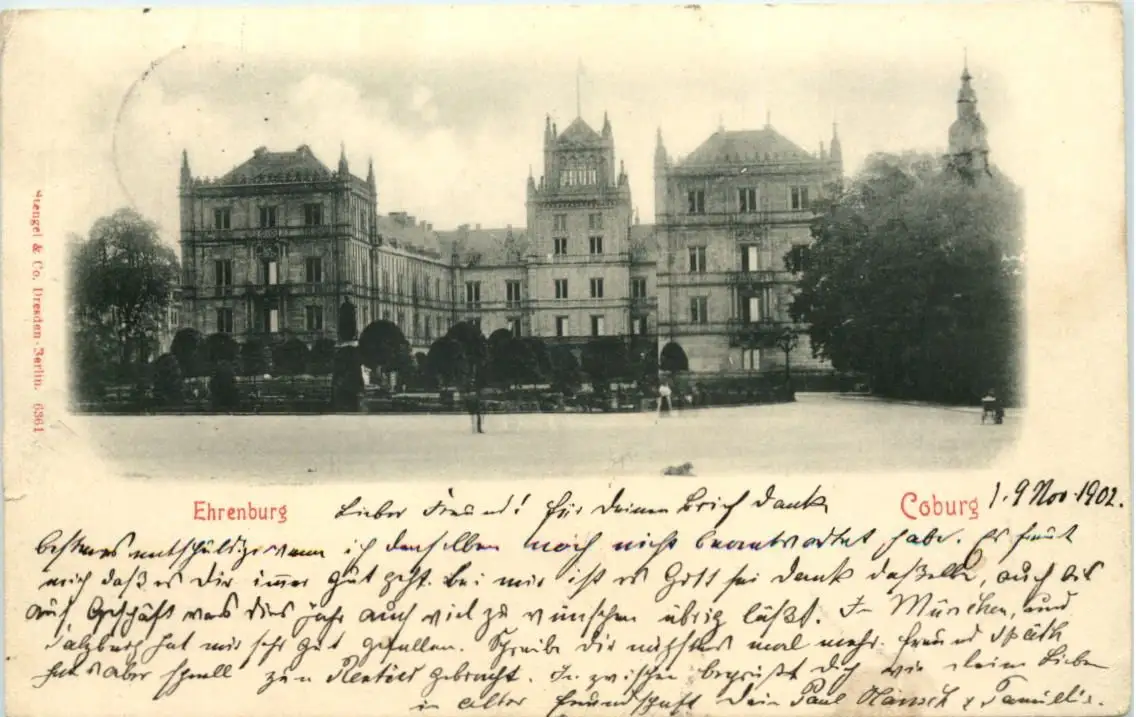 Stengel & Co. Dresden-Berlin. 6361
Ehrenburg
Coburg
9 Nov. 1902.
Lieber Freund! Für deinen Brief danke
bestens entschuldige wenn ich denselben noch nicht beantwortet habe. Es freut
mich daß es Dir immer gut geht. Bei mir ist es Gott sei Dank dasselbe, auch bis
auf Geschäft was dies Jahr auch viel zu wünschen übrig läßt. In München, und
Salzburg hat mir sehr gut gefallen. Schreibe Dir nächstens mal mehr. Freund Späth
hat es aber schnell zum gebracht. Inzwischen begrüßt Dich wie deine Lieben
in alter Freundschaft Dein Paul & Familie.